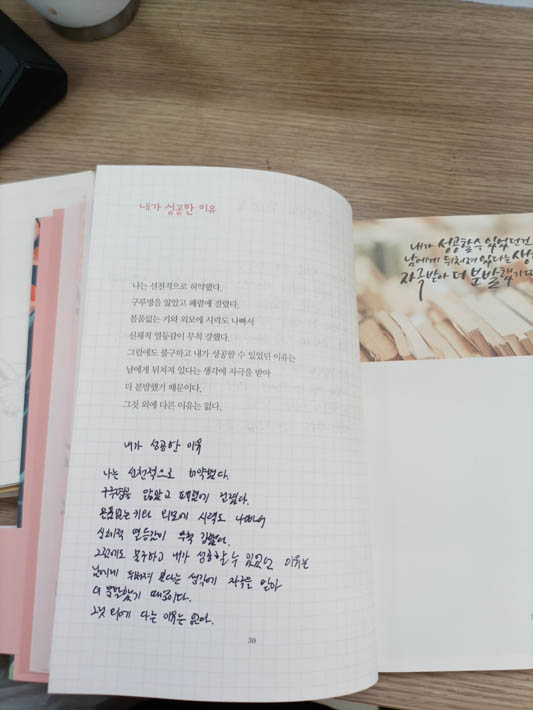 내가 성공한 이유
나는 선천적으로 허약했다.
구루병을 앓았고 폐렴에 걸렸다.
볼품없는 키와 외모에 시력도 나빠서
신체적 열등감이 무척 강했다.
그럼에도 불구하고 내가 성공할 수 있었던 이유는
남에게 뒤처져 있다는 생각에 자극을 받아
더 분발했기 때문이다.
그것 외에 다른 이유는 없다.
내가 성공한 이유
나는 선천적으로 허약했다.
구루병을 앓았고 폐렴에 걸렸다.
볼품없는 키와 외모에 시력도 나빠서
신체적 열등감이 무척 강했다.
그럼에도 불구하고 내가 성공할 수 있었던 이유는
남에게 뒤처져 있다는 생각에 자극을 받아
더 분발했기 때문이다.
그것 외에 다른 이유는 없다.
30
내가 성공할 수 있었던건
남에게 뒤처져 있다는
자극받아 더 분발했기